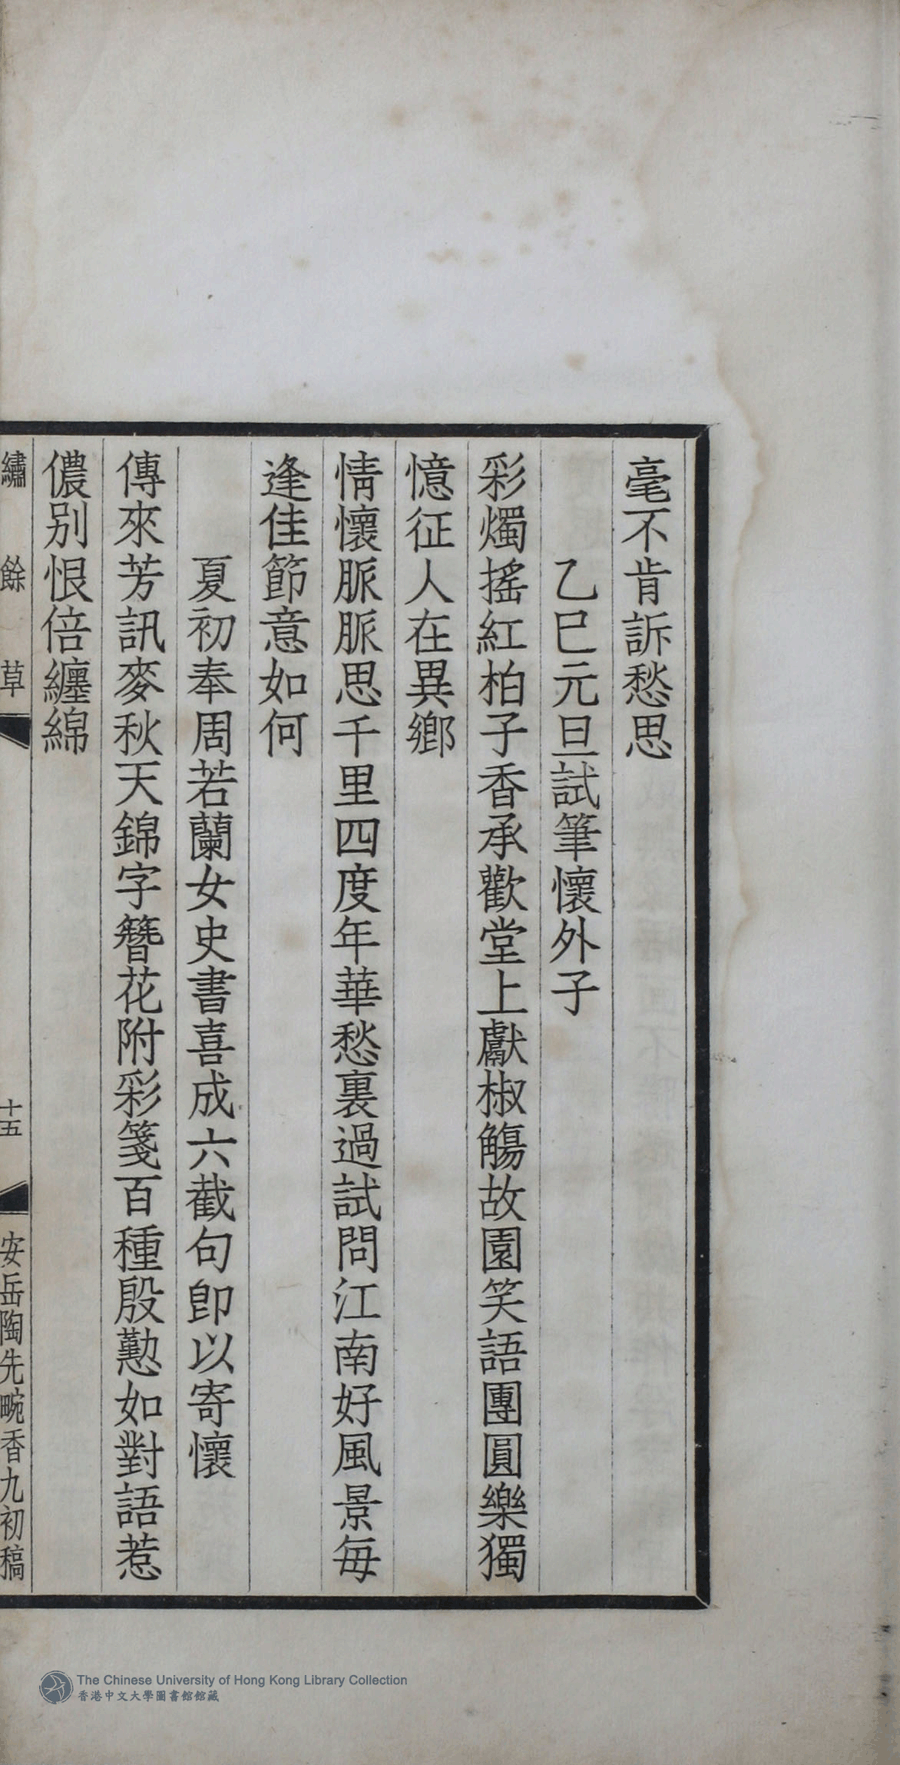 毫不肯訴愁思
乙巳元旦試筆懷外子
彩燭搖紅柏子香承歡堂上獻椒觴故園笑語團圓樂獨
憶征人在異鄉
情懷脈脈思千里四度年華愁裏過試問江南好風景每
逢佳節意如何
夏初奉周若蘭女史書喜成六截句卽以寄懷
傳來芳訊麥秋天錦字簪花附彩箋百種殷懃如對語惹
儂別恨倍纏綿
繡餘草
十五
安岳陶先畹香九初稿
The Chinese University of Hong Kong Library Collection
香港中文大學圖書館館藏